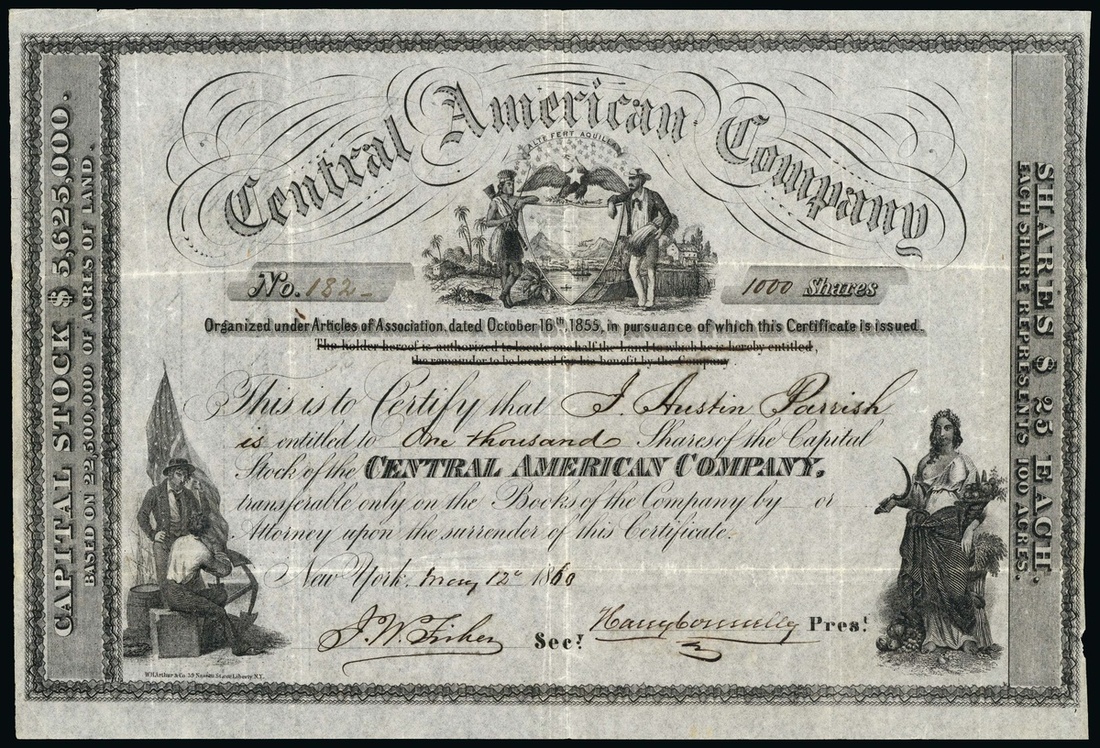 Central American Company
ALTE FERT AQUILLA
No. 182
1000 Shares
Organized under Articles of Association, dated October 16th 1855, in pursuance of which this Certificate is issued.
The holder hereof is authorized to locate one half the Land to which he is hereby entitled,
the remainder to be located for his benefit by the Company
This is to Certify that J. Austin Parrish
is entitled to One thousand Shares of the Capital
Stock of the CENTRAL AMERICAN COMPANY,
transferable only on the Books of the Company by or
Attorney upon the surrender of this Certificate.
New York, May 12 1860
J. W. Fisher Secy
Harry Connelly Prest
W.H. Arthur & Co. 39 Nassau St. cor Liberty N.Y.
CAPITAL STOCK $ 5,625,000.
BASED ON 22,500,000 OF ACRES OF LAND.
SHARES $ 25 EACH.
EACH SHARE REPRESENTS 100 ACRES.